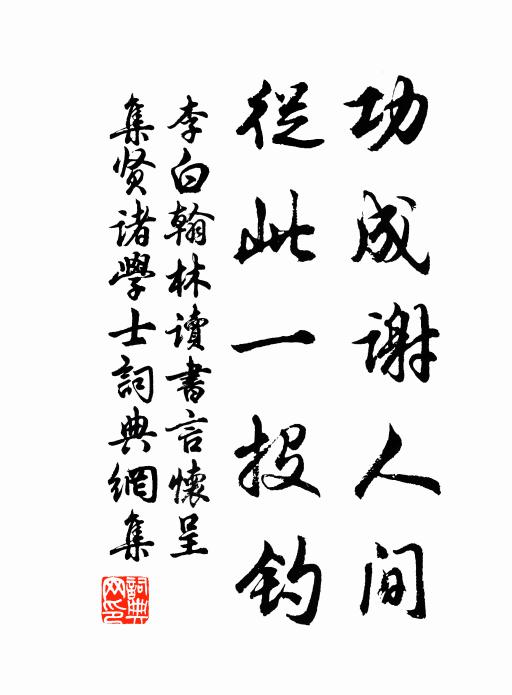 功成謝人间
從此一投钓
李白翰林讀書言懷呈
集贤诸學士詞典網集
詞典網印